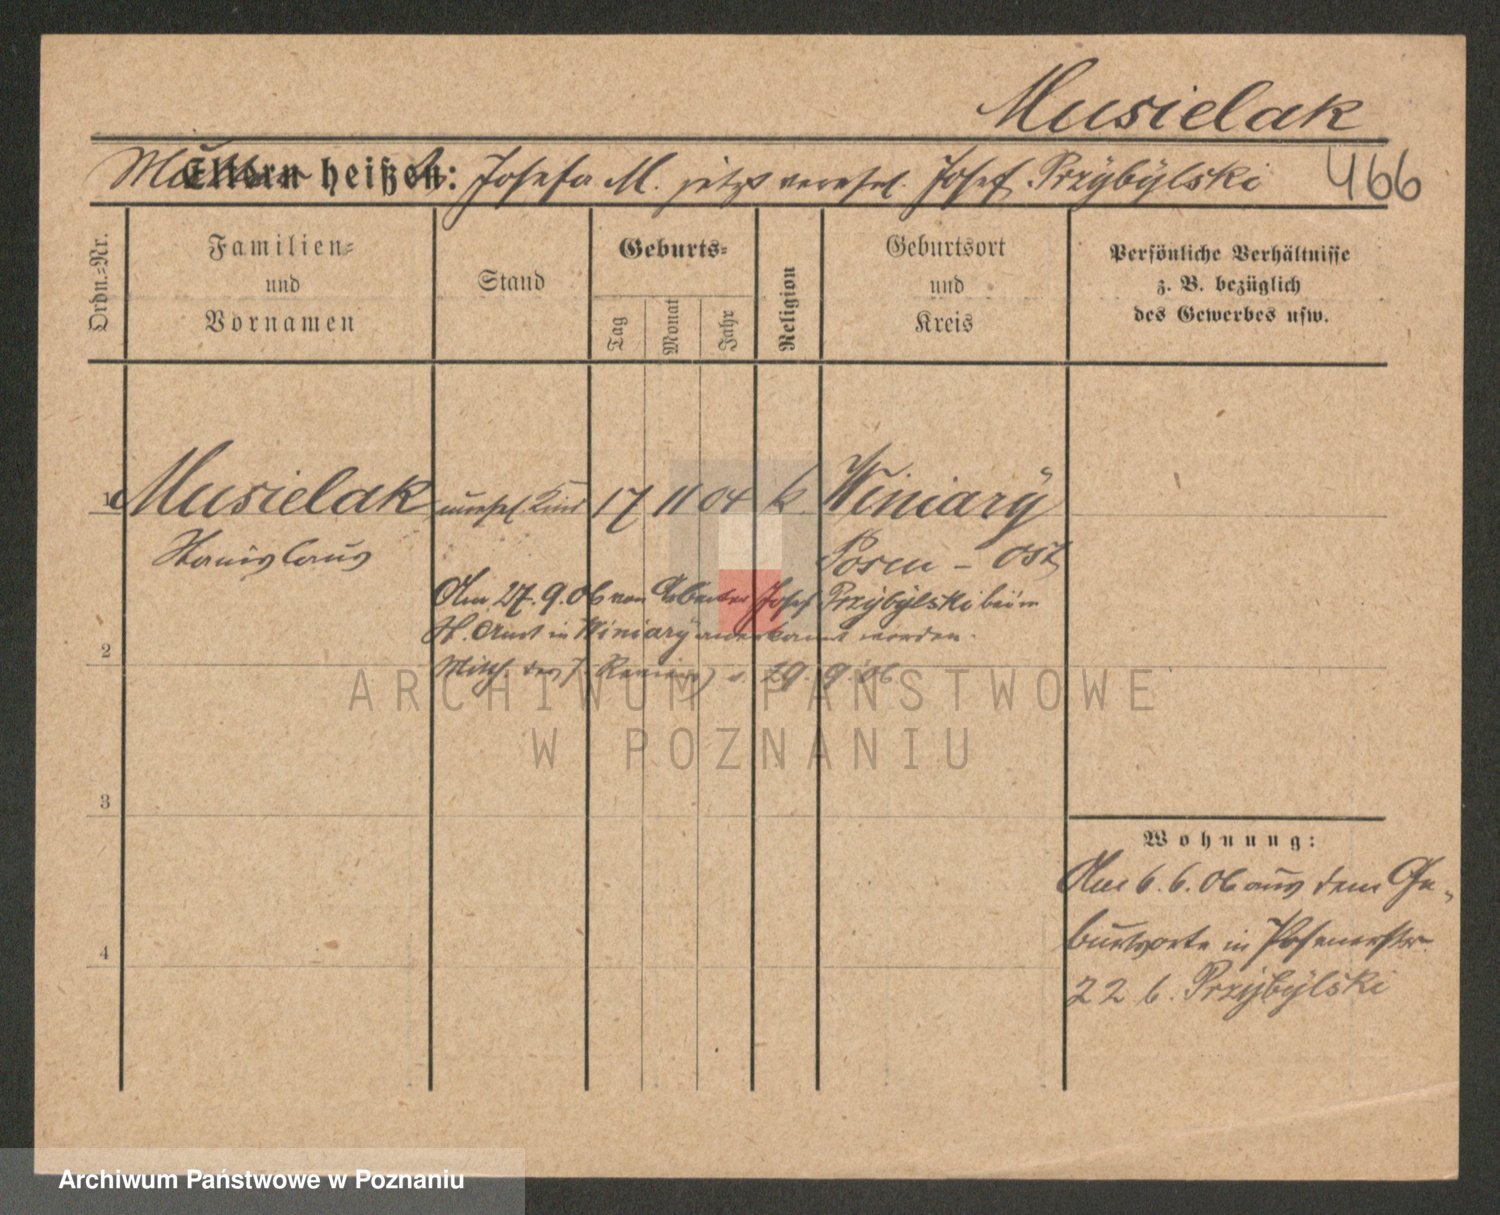 Musielak
466
Eltern heißen: Mutter Josefa M. jetzt verehel. Josef Przybÿlski
Ordn.=Nr.
Familien=
und
Vornamen
Stand
Geburts=
Tag
Monat
Jahr
Religion
Geburtsort
und
Kreis
Persönliche Verhältnisse
z. B. bezüglich
des Gewerbes usw.
1 Musielak unehel. Kind 17 11 04 k. Winiarÿ
Stanislaus Posen - Ost
Am 27.9.06 von Arbeiter Josef Przÿbÿlski beim
St. Amt in Winiarÿ anerkannt worden.
2
Mitth. des 7. Reviers v. 29.9.06
3
Wohnung:
Am 6.6.06 aus dem Ge-
burtsorte in Posenerstr.
4
22 b. Przÿbÿlski
ARCHIWUM PAŃSTWOWE
W POZNANIU
Archiwum Państwowe w Poznaniu